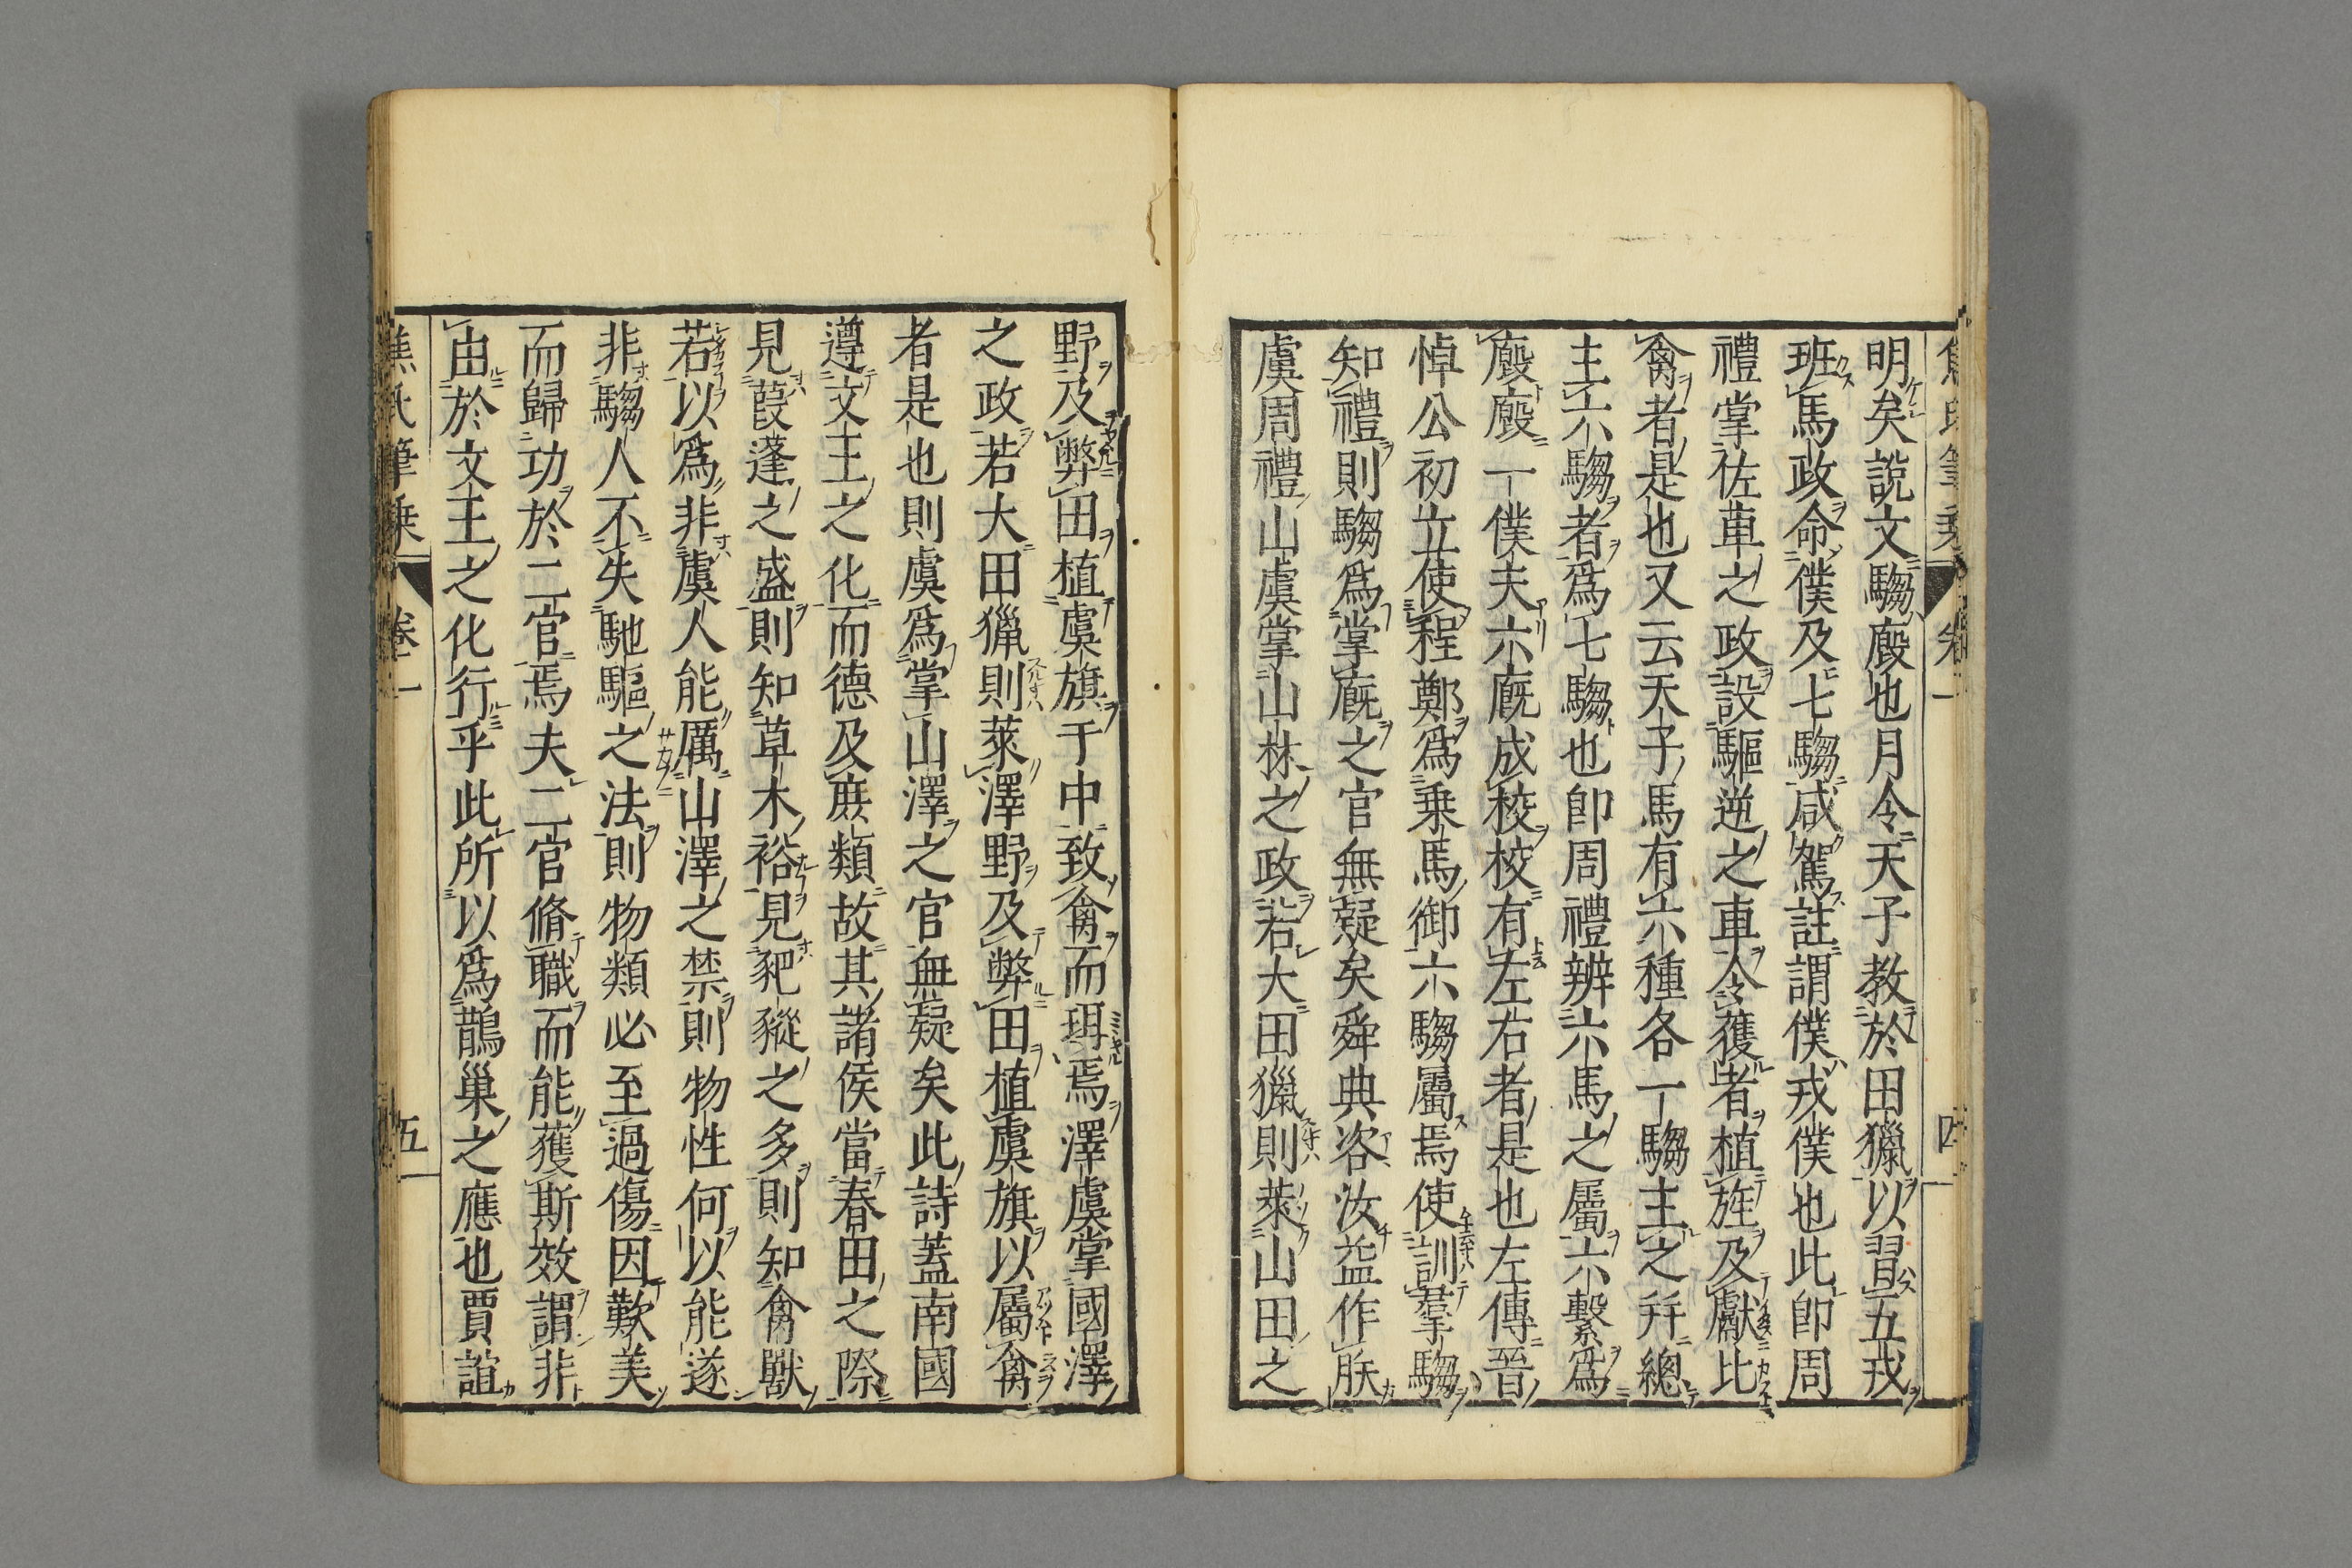 明矣說文騶廄也月令天子教於田獵以習五戎
班馬政命僕及七騶咸駕註謂僕戎僕也此卽周
禮掌佐車之政設驅逆之車令獲者植旌及獻比
禽者是也又云天子馬有六種各一騶主之幷總
主六騶者爲七騶也卽周禮辨六馬之屬六繫爲
廄廄一僕夫六廐成校校有左右者是也左傳晉
悼公初立使程鄭爲乗馬御六騶屬焉使訓羣騶
知禮則騶爲掌廐之官無疑矣舜典咨汝益作朕
虞周禮山虞掌山林之政若大田獵則萊山田之
野及弊田植虞旗于中致禽而珥焉澤虞掌國澤
之政若大田獵則萊澤野及弊田植虞旗以屬禽
者是也則虞爲掌山澤之官無疑矣此詩蓋南國
遵文王之化而德及庶類故其諸侯當春田之際
見葭蓬之盛則知草木裕見豝豵之多則知禽獸
若以爲非虞人能厲山澤之禁則物性何以能遂
非騶人不失馳驅之法則物類必至過傷因歎美
而歸功於二官焉夫二官脩職而能獲斯效謂非
由於文王之化行乎此所以爲鵲巢之應也賈誼
焦氏筆乗 卷一 五